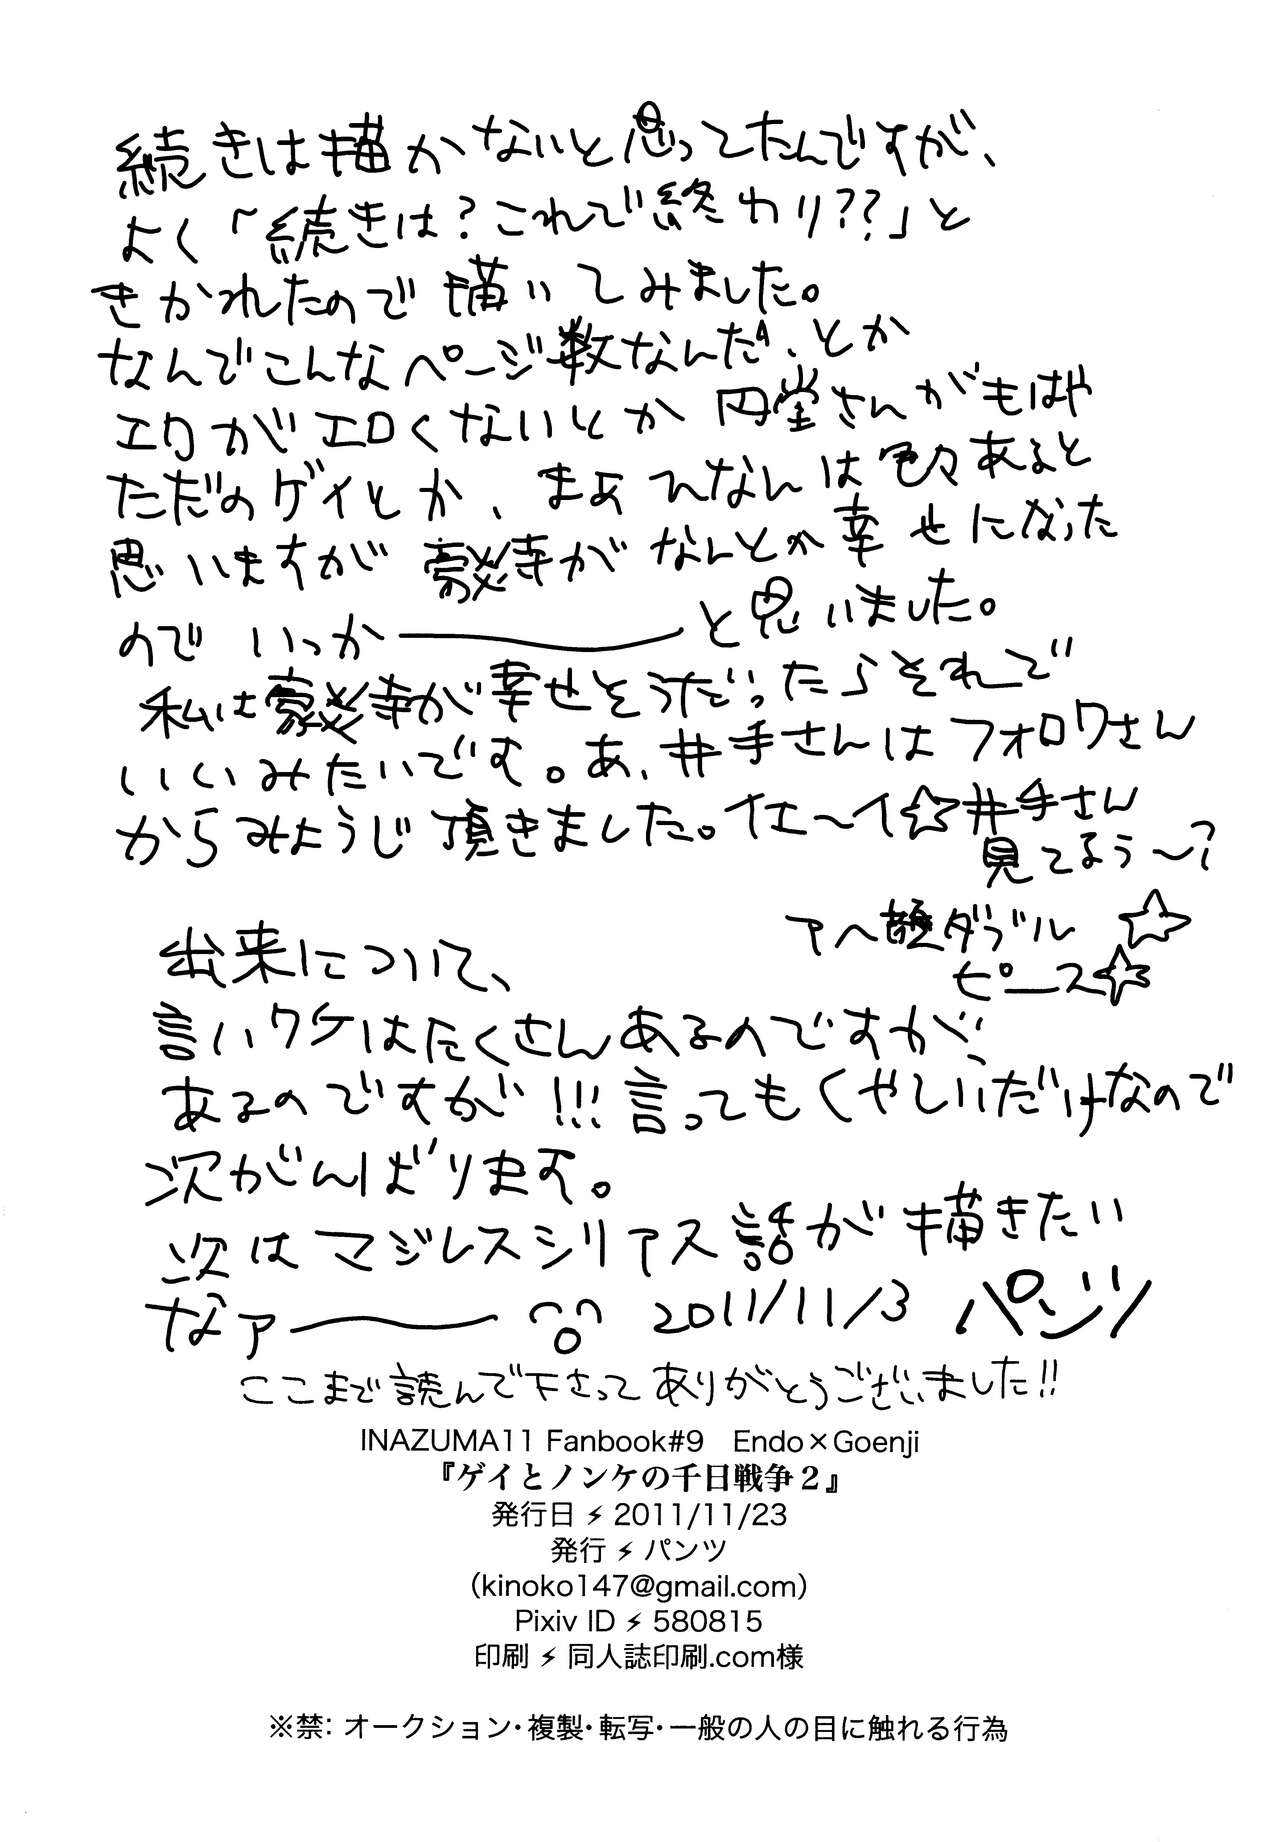 続きは描かないと思ってたんですが、
よく「続きは?これで終わり??」と
きかれたので描いてみました。
なんでこんなページ数なんだ、とか
エロがエロくないとか円堂さんがもはや
ただのゲイとか、まあひなんは色々あると
思いますが豪炎寺がなんとか幸せになった
のでいっか――――と思いました。
私は豪炎寺が幸せそうだったらそれで
いいみたいです。あ、井手さんはフォロワさん
からみょうじ頂きました。イエ〜イ☆井手さん
見てるぅ〜?
アヘ顔ダブル☆
ピース☆
出来について、
言いワケはたくさんあるのですが、
あるのですが!!!言ってもくやしいだけなので
次がんばります。
次はマジレスシリアス話が描きたい
なァ――― 2011/11/3 パンツ
ここまで読んで下さってありがとうございました!!
INAZUMA11 Fanbook#9 Endo×Goenji
『ゲイとノンケの千日戦争2』
発行日⚡2011/11/23
発行⚡パンツ
(kinoko147@gmail.com)
Pixiv ID⚡580815
印刷⚡同人誌印刷.com様
※禁: オークション・複製・転写・一般の人の目に触れる行為